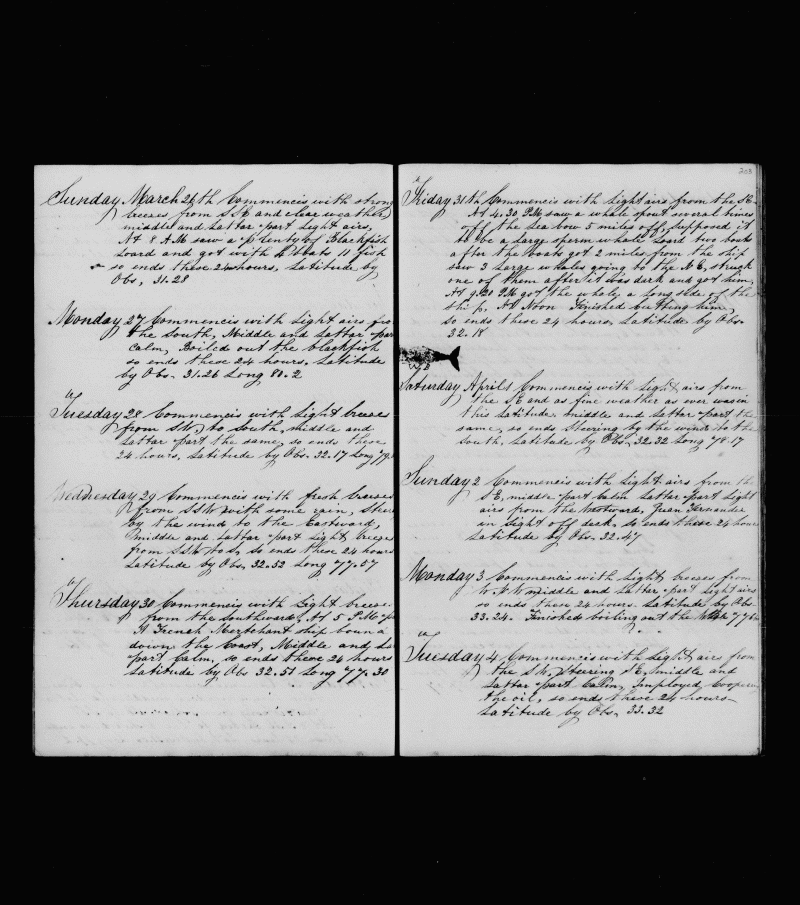 Sunday March 26th Commencis with strong
breezes from SSE and clear weather,
middle and Lattar part Light airs,
At 8 A.M saw a plenty of Blackfish
Loard and got with boats 11 fish
so ends these 24 hours, Latitude by
Obs, 31.28
Monday 27 Commencis with Light airs fro
the South, Middle and Lattar par
Calm, Boiled out the blackfish
so ends these 24 hours. Latitude
by Obs. 31.26 Long 80.2
Tuesday 28 Commencis with Light breeze
from SW, to South, middle and
Lattar part the same, so ends these
24 hours, Latitude by Obs. 32.17 Long 79.
Wednesday 29 Commencis with fresh breezes
from SSW with some rain, Steer
by the wind to the Eastward,
middle and Lattar part Light breezes
from SSW to S, so ends these 24 hours
Latitude by Obs. 32.52 Long 77.57
Thursday 30 Commencis with Light breeze
from the Southward, At 5 P.M
A French Merchant ship bound
down the Coast, Middle and La
part Calm, so ends these 24 hours
Latitude by Obs 32.51 Long 77.30
203
Friday 31th Commencis with Light airs from the SE.
At 4.30 P.M saw a whale spout several times
off the Sea bow 5 miles off, supposed it
to be a Large sperm whale Loard two boats
after the boats got 2 miles from the ship
saw 3 Large whales going to the NE, struck
one of them after it was dark and got him,
At 9.20 P.M got the whale a Long side of the
ship. At Noon Finished cutting him,
so ends these 24 hours, Latitude by Obs.
32.18
Saturday April 1 Commencis with Light airs from
the SE and as fine weather as ever was in
this Latitude, middle and Lattar part the
same, so ends Steering by the wind to the
South, Latitude by Obs. 32.32 Long 78.17
Sunday 2 Commencis with Light airs from the
SE, middle part Calm Lattar part Light
airs from the Westward, Juan Fernander
in Sight off deck, so ends these 24 hours
Latitude by Obs. 32.47
Monday 3 Commencis with Light breezes from
W.N.W middle and Lattar part Light airs
so ends these 24 hours. Latitude by Obs
33.24. Finished boiling out the Whale
Tuesday 4 Commencis with Light airs from
the SW, Steering SE, middle and
Lattar part Calm, Employed Coopering
the oil, so ends these 24 hours
Latitude by Obs. 33.32